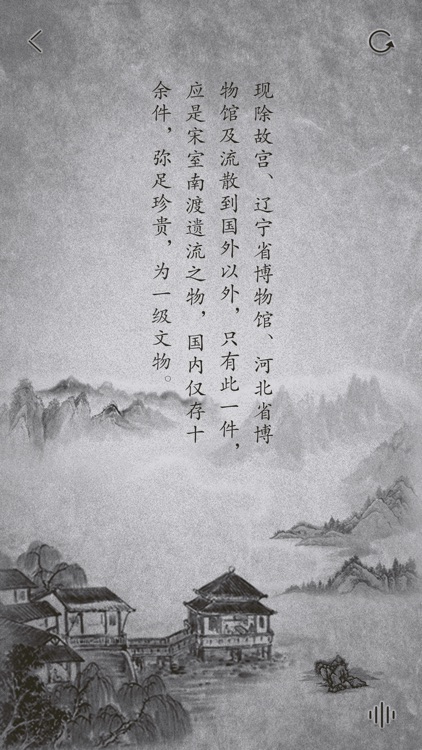 现除故宫、辽宁省博物馆、河北省博
物馆及流散到国外以外，只有此一件，
应是宋室南渡遗流之物，国内仅存十
余件，弥足珍贵，为一级文物。